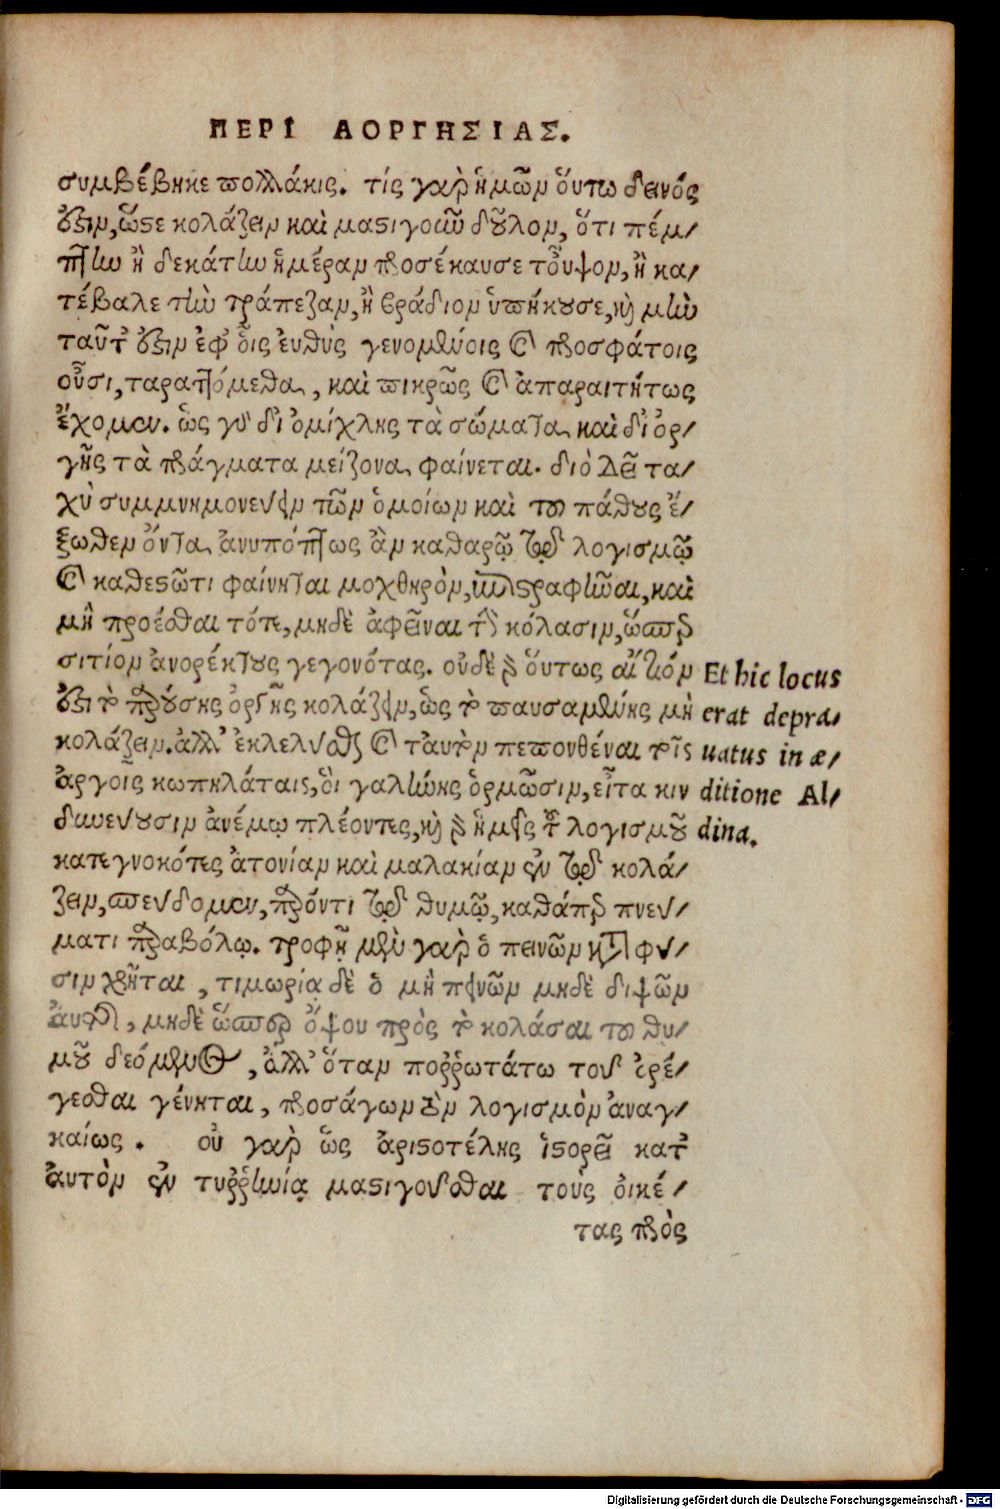 ΠΕΡΙ ΑΟΡΓΗΣΙΑΣ.
συμβέβηκε πολλάκις. τίς γὰρ ἡμῶν ὅυτω δεινός
ὅϛιν, ὥϛε κολάζειν καὶ μαϛιγοῶν δοῦλον, ὅτι πέμ/
πτην ἢ δεκάτην ἡμέραν προσέκαυσε τοὖψον, ἢ κα/
τέβαλε τὴν τράπεζαν, ἢ βράδιον ὑπήκουσε, καὶ μὴν
ταῦτ᾽ ὅϛιν ἐφ᾽ ὃις ἐυθὺς γενομένοις καὶ προσφάτοις
οὖσι, ταραττόμεθα, καὶ πικρῶς καὶ ἀπαραιτήτως
ἔχομεν. ὡς γὰρ δι᾽ ὀμίχλης τὰ σώματα, καὶ δι᾽ ὀρ/
γῆς τὰ πράγματα μείζονα φαίνεται. διὸ δεῖ τα/
χὺ συμμνημονεύειν τῶν ὁμοίων καὶ τοῦ πάθους ἔ/
ξωθεν ὄντα, ἀνυπόπτως ἂν καθαρῷ τῷ λογισμῷ
καὶ καθεϛῶτι φαίνηται μοχθηρὸν, ἐπιϛραφῆναι, καὶ
μὴ προέσθαι τότε, μηδὲ ἀφεῖναι τὴν κόλασιν, ὥσπερ
σιτίον ἀνορέκτους γεγονότας. οὐδὲν γὰρ ὅυτως αἴτιόν
ὅϛι τοῦ παρούσης ὀργῆς κολάζειν, ὡς τὸ παυσαμένης μὴ
κολάζειν. ἀλλ᾽ ἐκλελύσθαι καὶ ταὐτὸν πεπονθέναι τοῖς
ἀργοῖς κωπηλάταις, ὃι γαλήνης ὁρμῶσιν, εἶτα κιν
δυνεύουσιν ἀνέμῳ πλέοντες, καὶ γὰρ ἡμεῖς τοῦ λογισμοῦ
κατεγνοκότες ἀτονίαν καὶ μαλακίαν ἐν τῷ κολά/
ζειν, σπεύδομεν, παρόντι τῷ θυμῷ, καθάπερ πνεύ/
ματι παραβόλῳ. τροφῇ μὲν γὰρ ὁ πεινῶν κατὰ φύ/
σιν χρῆται, τιμωρίᾳ δὲ ὁ μὴ πεινῶν μηδὲ διψῶν
ἀυτῆς, μηδὲ ὥσπερ ὄψου πρὸς τὸ κολάσαι τοῦ θυ/
μοῦ δεόμενος, ἀλλ᾽ ὅταν πορρωτάτω τοῦ ὀρέ/
γεσθαι γένηται, προσάγων τὸν λογισμὸν ἀναγ/
καίως. οὐ γὰρ ὡς ἀριϛοτέλης ἱϛορεῖ κατ᾽
ἀυτὸν ἐν τυρρηνίᾳ μαϛιγοῦσθαι τοὺς ὀικέ/
τας πρὸς
Et hic locus
erat depra/
uatus in æ/
ditione Al/
dina.
Digitalisierung gefördert durch die Deutsche Forschungsgemeinschaft - DFG